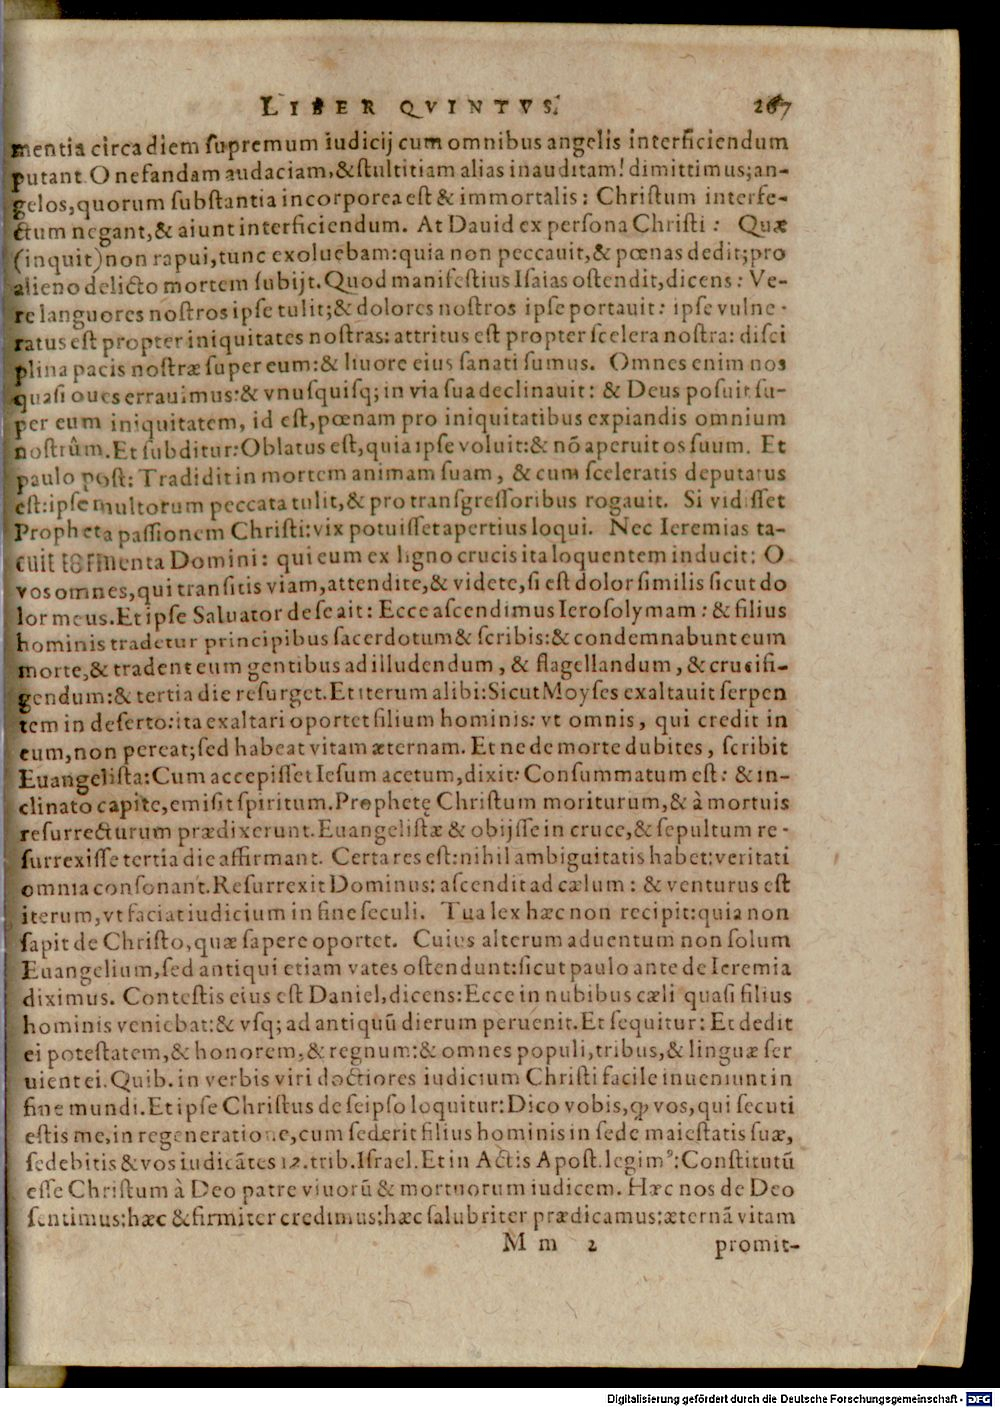 LIBER QVINTVS. 267
mentia circa diem ſupremum iudicij cum omnibus angelis interficiendum
putant. O nefandam audaciam, & ſtultitiam alias inauditam! dimittimus; an-
gelos, quorum ſubſtantia incorporea eſt & immortalis: Chriſtum interfe-
ctum negant, & aiunt interficiendum. At Dauid ex perſona Chriſti: Quæ
(inquit) non rapui, tunc exoluebam: quia non peccauit, & pœnas dedit; pro
alieno delicto mortem ſubijt. Quod manifeſtius Iſaias oſtendit, dicens: Ve-
re languores noſtros ipſe tulit; & dolores noſtros ipſe portauit: ipſe vulne-
ratus eſt propter iniquitates noſtras: attritus eſt propter ſcelera noſtra: diſci
plina pacis noſtræ ſuper eum: & liuore eius ſanati ſumus. Omnes enim nos
quaſi oues errauimus: & vnuſquiſq; in via ſua declinauit: & Deus poſuit ſu-
per eum iniquitatem, id eſt, pœnam pro iniquitatibus expiandis omnium
noſtrûm. Et ſubditur: Oblatus eſt, quia ipſe voluit: & nō aperuit os ſuum. Et
paulo poſt: Tradidit in mortem animam ſuam, & cum ſceleratis deputatus
eſt: ipſe multorum peccata tulit, & pro tranſgreſſoribus rogauit. Si vidiſſet
Propheta paſſionem Chriſti: vix potuiſſet apertius loqui. Nec Ieremias ta-
cuit tormenta Domini: qui eum ex ligno crucis ita loquentem inducit: O
vos omnes, qui tranſitis viam, attendite, & videte, ſi eſt dolor ſimilis ſicut do
lor meus. Et ipſe Saluator de ſe ait: Ecce aſcendimus Ieroſolymam: & filius
hominis tradetur principibus ſacerdotum & ſcribis: & condemnabunt eum
morte, & tradent eum gentibus ad illudendum, & flagellandum, & crucifi-
gendum: & tertia die reſurget. Et iterum alibi: Sicut Moyſes exaltauit ſerpen
tem in deſerto: ita exaltari oportet filium hominis: vt omnis, qui credit in
eum, non pereat; ſed habeat vitam æternam. Et ne de morte dubites, ſcribit
Euangeliſta: Cum accepiſſet Ieſum acetum, dixit: Conſummatum eſt: & in-
clinato capite, emiſit ſpiritum. Prophetę Chriſtum moriturum, & à mortuis
reſurrecturum prædixerunt. Euangeliſtæ & obijſſe in cruce, & ſepultum re-
ſurrexiſſe tertia die affirmant. Certa res eſt: nihil ambiguitatis habet: veritati
omnia conſonant. Reſurrexit Dominus: aſcendit ad cælum: & venturus eſt
iterum, vt faciat iudicium in fine ſeculi. Tua lex hæc non recipit: quia non
ſapit de Chriſto, quæ ſapere oportet. Cuius alterum aduentum non ſolum
Euangelium, ſed antiqui etiam vates oſtendunt: ſicut paulo ante de Ieremia
diximus. Conteſtis eius eſt Daniel, dicens: Ecce in nubibus cæli quaſi filius
hominis veniebat: & vſq; ad antiquū dierum peruenit. Et ſequitur: Et dedit
ei poteſtatem, & honorem, & regnum: & omnes populi, tribus, & linguæ ſer
uient ei. Quib. in verbis viri doctiores iudicium Chriſti facile inueniunt in
fine mundi. Et ipſe Chriſtus de ſeipſo loquitur: Dico vobis, ꝙ vos, qui ſecuti
eſtis me, in regeneratione, cum ſederit filius hominis in ſede maieſtatis ſuæ,
ſedebitis & vos iudicātes 12. trib. Iſrael. Et in Actis Apoſt. legimꝰ: Conſtitutū
eſſe Chriſtum à Deo patre viuorū & mortuorum iudicem. Hæc nos de Deo
ſentimus: hæc & firmiter credimus: hæc ſalubriter prædicamus: æternā vitam
M m 2 promit-
Digitalisierung gefördert durch die Deutsche Forschungsgemeinschaft - DFG